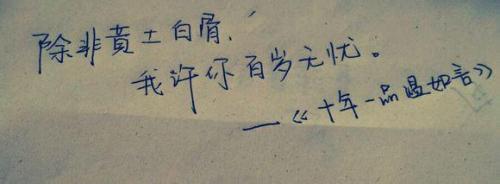 除非黄土白骨，
我许你百岁无忧。
—《十年一品温如言》